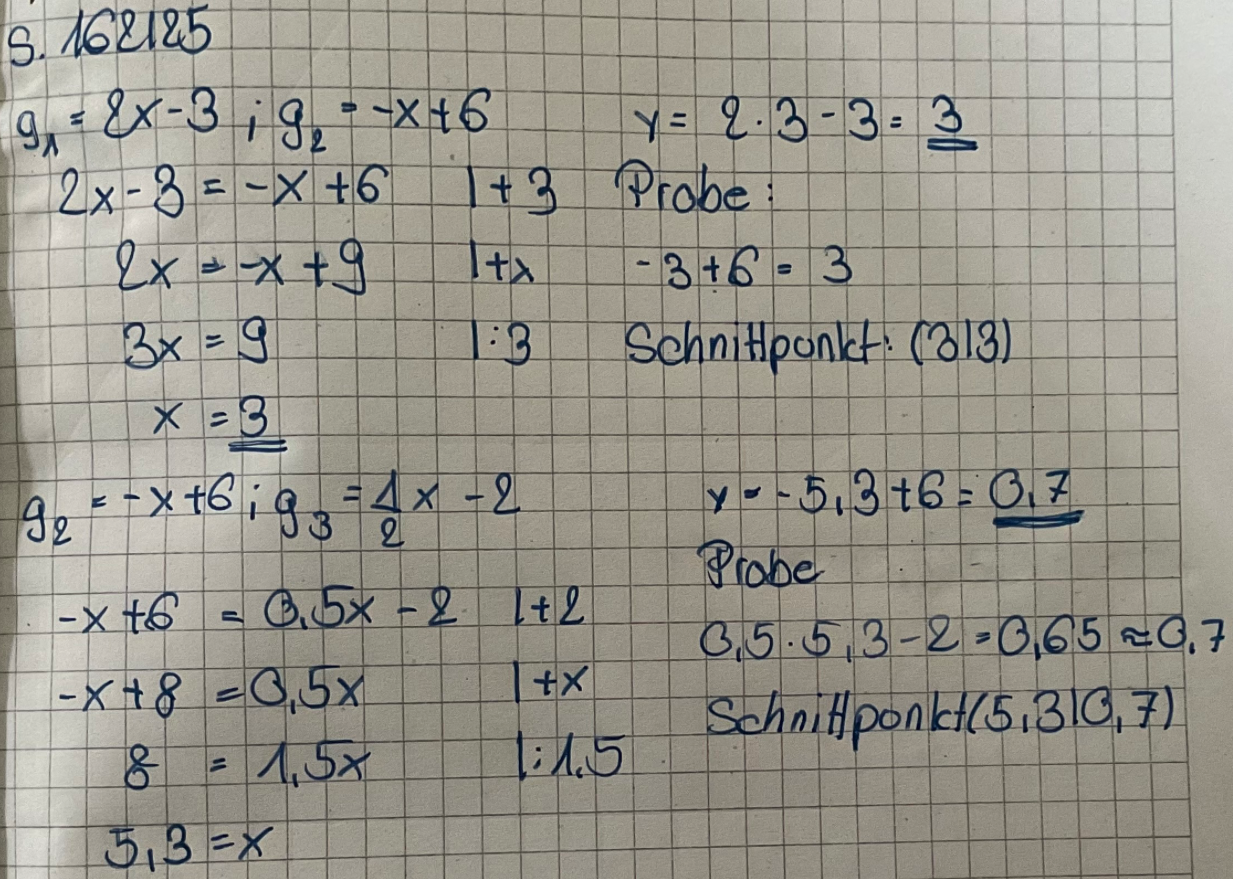 S. 162/25
g₁ = 2x-3 ; g₂ = -x+6
2x-3 = -x+6 |+3
2x = -x+9 |+x
3x = 9 |:3
x = 3
y = 2·3-3 = 3
Probe:
-3+6 = 3
Schnittpunkt: (3|3)
g₂ = -x+6 ; g₃ = 1/2 x - 2
-x+6 = 0,5x-2 |+2
-x+8 = 0,5x |+x
8 = 1,5x |:1,5
5,3 = x
y = -5,3+6 = 0,7
Probe
0,5·5,3-2 = 0,65 ≈ 0,7
Schnittpunkt (5,3|0,7)